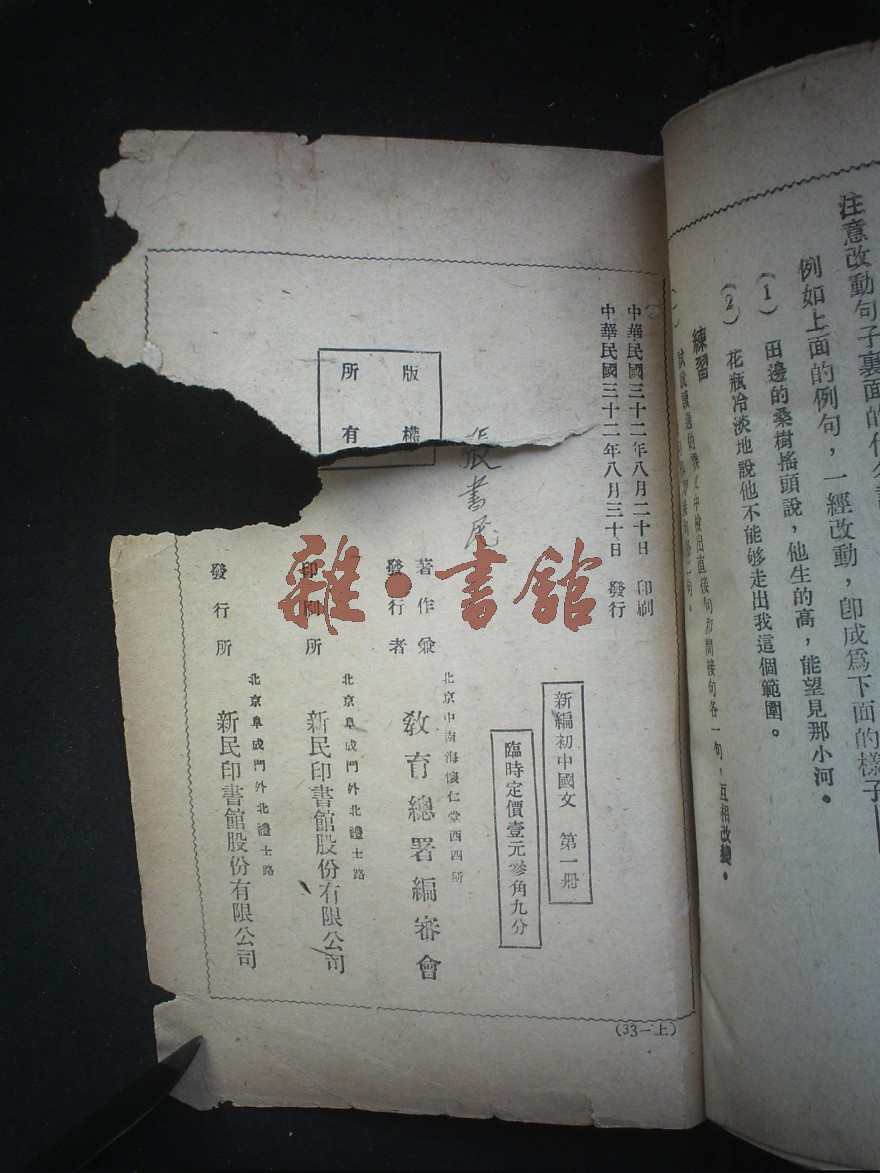 注意改動句子裏面的代名詞
例如上面的例句，一經改動，卽成爲下面的樣子
(1) 田邊的桑樹搖頭說，他生的高，能望見那小河。
(2) 花瓶冷淡地說他不能够走出我這個範圍。
練習
的課文中檢出直接句和間接句各一句，互相改變。
中華民國三十二年八月二十日 印刷
中華民國三十二年八月三十日 發行
新編初中國文 第一册
臨時定價壹元參角九分
張書
版權
所有
著作兼
發行者
北京中南海懷仁堂西四所
教育總署編審會
印刷所
北京阜成門外北禮士路
新民印書館股份有限公司
發行所
北京阜成門外北禮士路
新民印書館股份有限公司
(33—上)
雜·書館